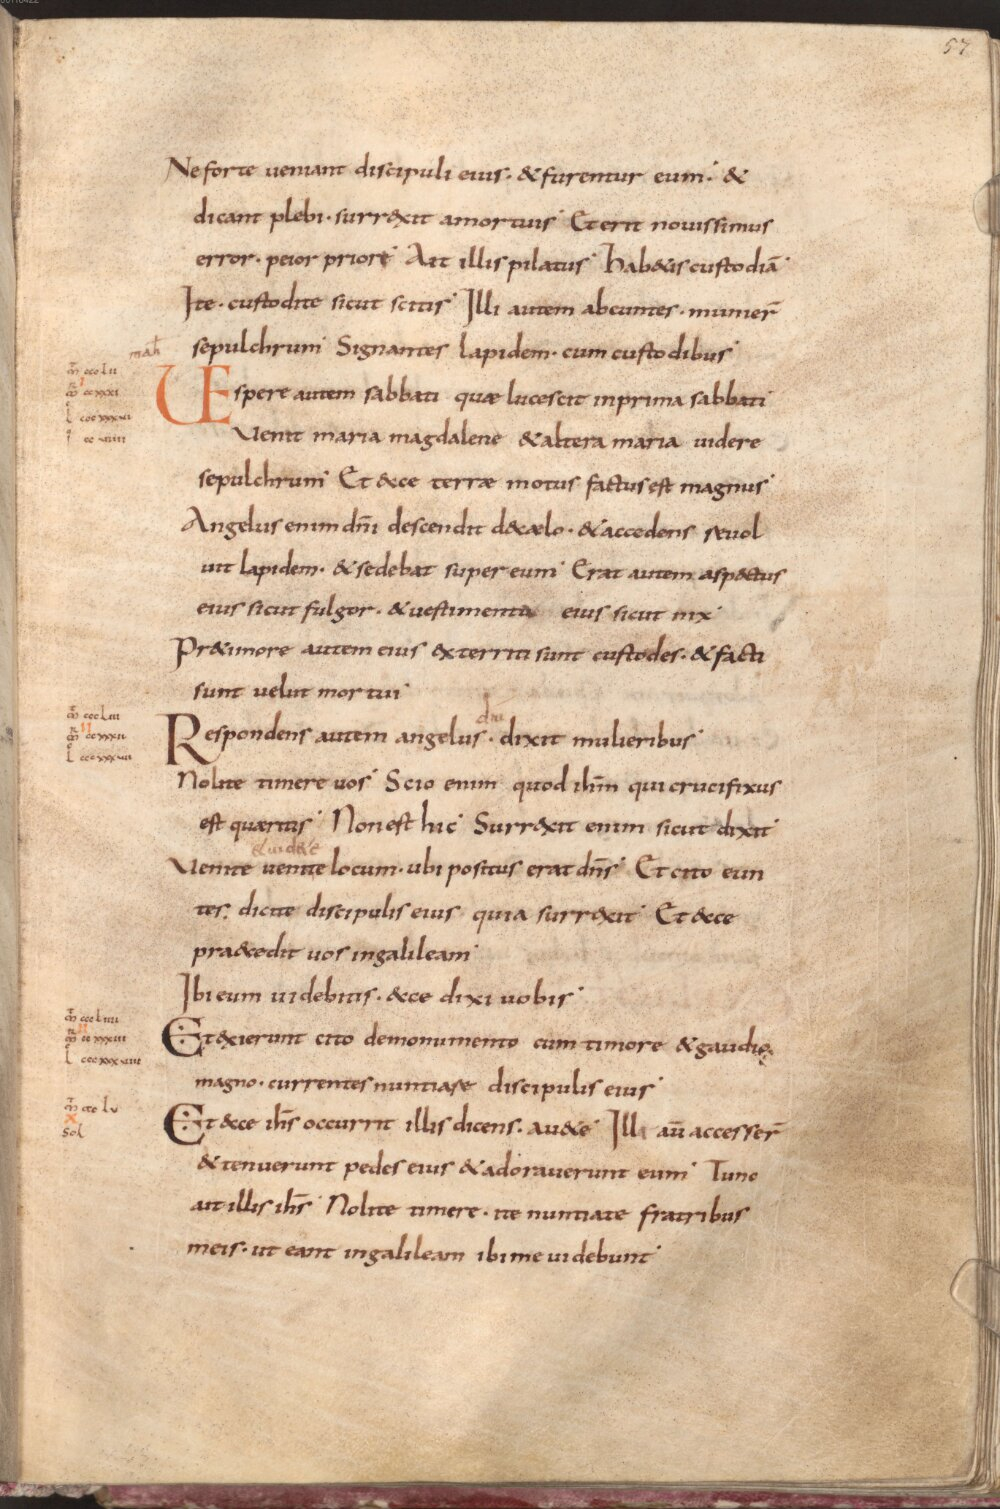 57
Ne forte ueniant discipuli eius · & furentur eum · &
dicant plebi · surrexit amortuis Et erit nouissimus
error · peior priore Ait illis pilatus hab&is custodiā
Ite · custodite sicut scitis Illi autem abeuntes · munier̄
sepulchrum Signantes lapidem · cum custodibus
math
m̄ ccc Lii
UEspere autem sabbati quæ lucescit inprima sabbati
Uenit maria magdalene & altera maria uidere
sepulchrum Et ecce terræ motus factus est magnus
Angelus enim dn̄i descendit de cælo · & accedens reuol
uit lapidem · & sedebat super eum Erat autem aspectus
eius sicut fulgor · & uestimenta eius sicut nix
Præ timore autem eius exterriti sunt custodes · & facti
sunt uelut mortui
m̄ ccc Liii
Respondens autem angelus · dixit mulieribus
Nolite timere uos Scio enim quod ihm̄ qui crucifixus
est quæritis Non est hic Surrexit enim sicut dixit
& uid&e
Uenite uenite locum · ubi positus erat dn̄s Et cito eun
tes · dicite discipulis eius quia surrexit Et ecce
præcedit uos ingalileam
Ibi eum uidebitis · ecce dixi uobis
m̄ ccc Liiii
Et exierunt cito demonumento cum timore & gaudio
magno · currentes nuntiare discipulis eius
m̄ ccc Lv
x
Sol
Et ecce ih̄s occurrit illis dicens · au&e Illæ aū accesser̄
& tenuerunt pedes eius & adorauerunt eum Tunc
ait illis ih̄s Nolite timere · ite nuntiate fratribus
meis · ut eant ingalileam ibi me uidebunt